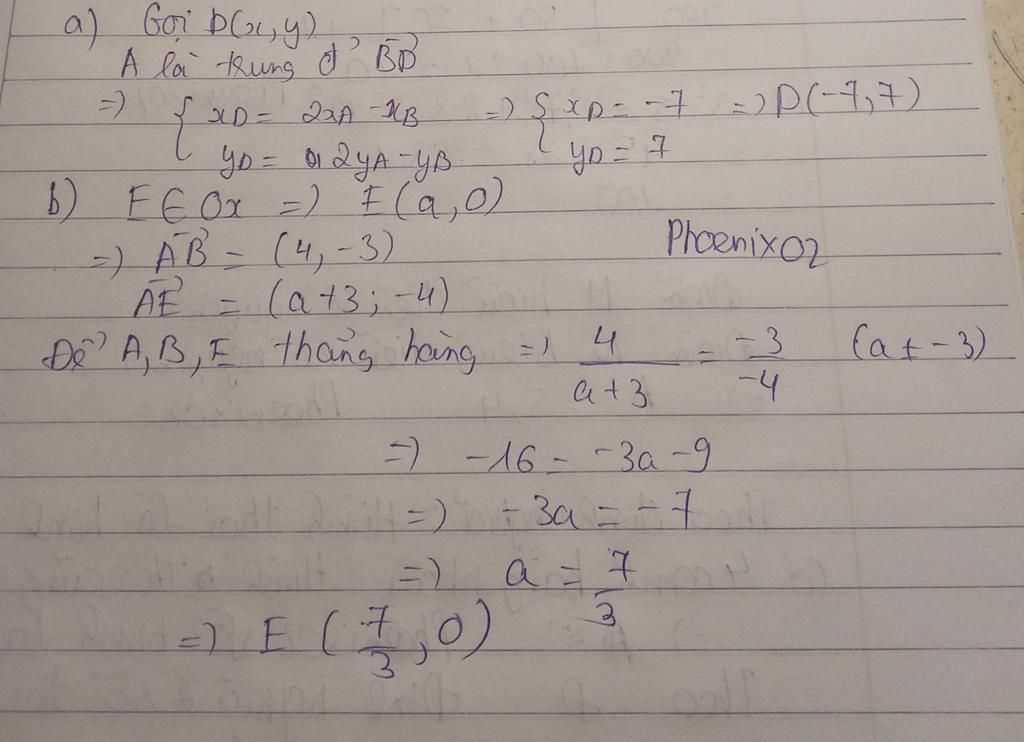 a) Gọi D(x,y)
A là trung đ' BD
=> { xD = 2xA - xB => { xD = -7 => D(-7,7)
yD = 2yA - yB yD = 7
b) E ∈ Ox => E(a,0)
=> AB = (4,-3)
Phoenix02
AE = (a+3; -4)
Để A, B, E thẳng hàng => 4/(a+3) = -3/-4 (a ≠ -3)
=> -16 = -3a - 9
=> -3a = -7
=> a = 7/3
=> E (7/3, 0)